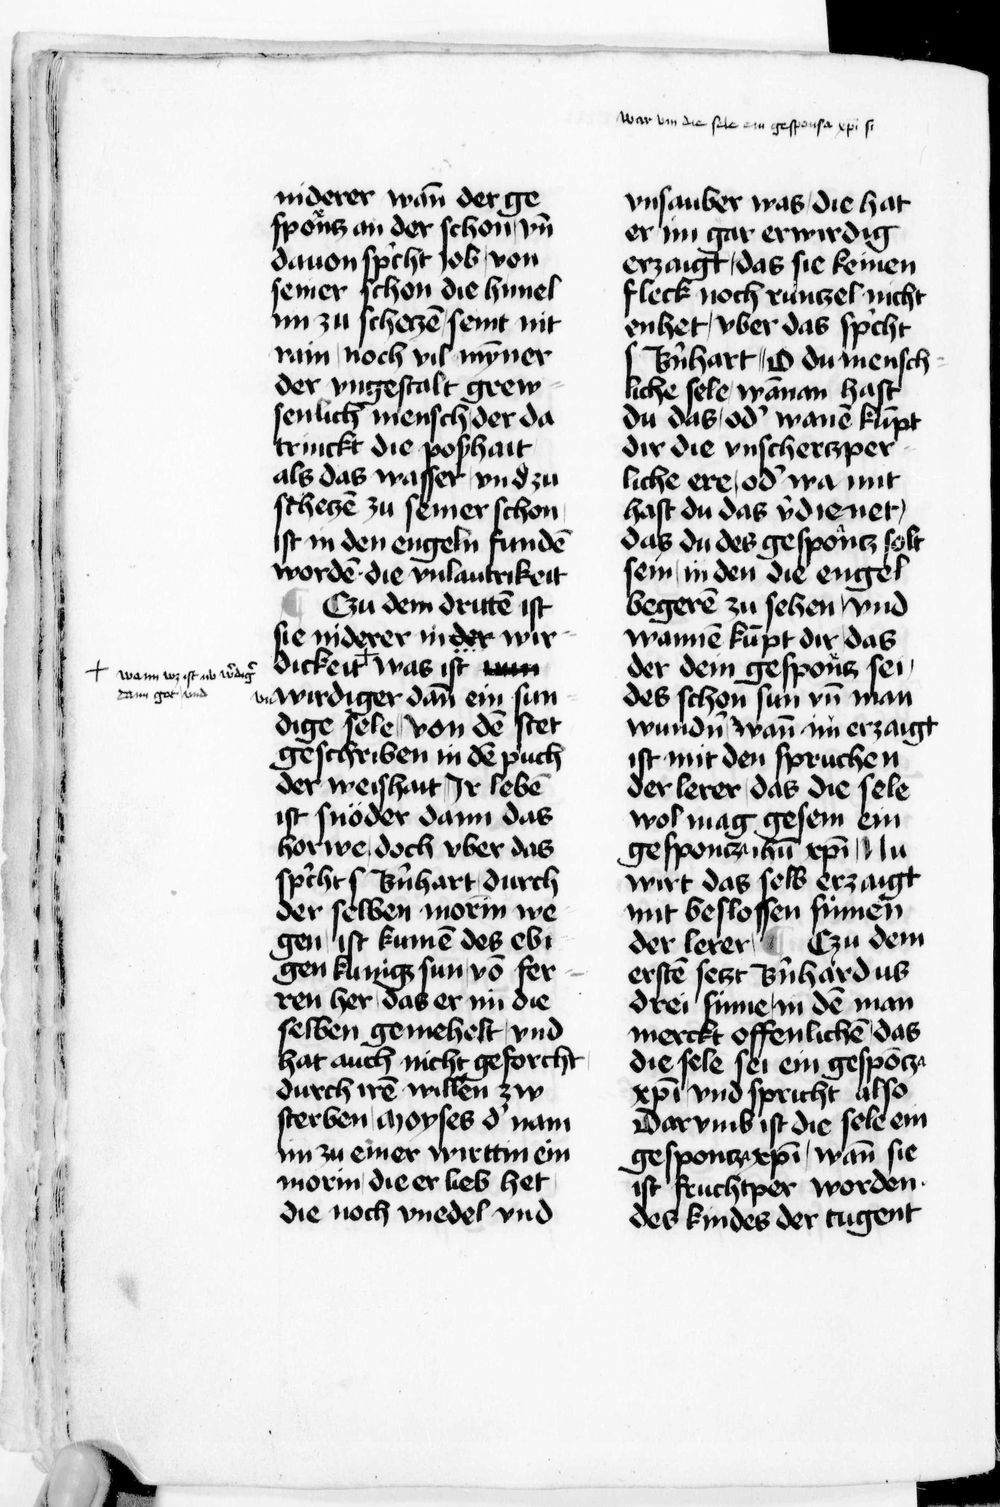 war vm die sele ein gesponsa xp̄i si
niderer wan̄ der ge
sponcz an der schon / vn̄
dauon sp̓cht Job / von
seiner schon die himel
im zu schetzē / seint nit
rain / noch vil mÿner
der vngestalt grew-
senlich mensch / der da
trinckt die poßhait /
als das wasser / vnd zu
schetzē zu seiner schon /
ist in den engeln fundē
wordē · die vnlautrikeit
¶ Czu dem drittē ist
sie niderer in der wir-
dickeit + was ist
+ wann wz ist nv wirdig̓
dann got vnd
vn wirdiger dan̄ ein sun-
dige sele / von dē stet
geschriben in dē puch
der weishait Ir lebē
ist snöder dann das
horwe / doch vber das
sp̓cht s Bn̄hart / durch
der selben morin we-
gen / ist kumē des ebi-
gen kunigs sun / vō fer-
ren her / das er im die
selben gemehelt / vnd
hat auch nicht geforcht /
durch irē willen zw
sterben / Moyses d̓ nam
im zu einer wirttin ein
morin / die er lieb het
die noch vnedel vnd
vnsauber was / die hat
er im gar erwirdig
erzaigt / das sie keinen
fleck noch runtzel nicht
enhet / vber das sp̓cht
s Bn̄hart // O du mensch-
liche sele / wānan hast
du das / od̓ wanē kūpt
dir die vnschetzper-
liche ere / od̓ wa mit
hast du das v̓dienet /
das du des gesponcz solt
sein / in den die engel
begerē zu sehen / vnd
wannē kūpt dir das
der dein gesponcz sei /
des schon sun vn̄ man
wundn̄ / wan̄ im erzaigt
ist mit den spruchen
der lerer / das die sele
wol mag gesein ein
gespontz ih̄u xp̄i / Nu
wirt das selb erzaigt
mit beslossen sinnen
der lerer / ¶ Czu dem
erstē setzt Bn̄hardus
drei sinne / in dē man
merckt offenlichē / das
die sele sei ein gespōcz
xp̄i / vnd spricht also
Darvmb ist die sele ein
gespontz xp̄i / wan̄ sie
ist fruchtper worden ·
des kindes der tugent